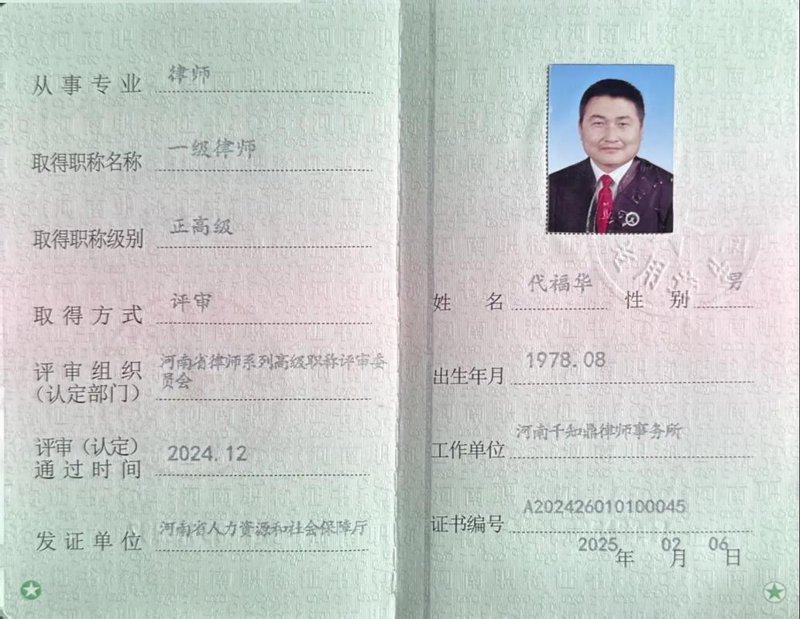 从事专业 律师
取得职称名称 一级律师
取得职称级别 正高级
取得方式 评审
评审组织
（认定部门）
河南省律师系列高级职称评审委
员会
评审（认定）
通过时间
2024.12
发证单位 河南省人力资源和社会保障厅
姓名 代福华 性别 男
出生年月 1978.08
工作单位 河南千知鼎律师事务所
证书编号 A202426010100045
2025年 02月 06日